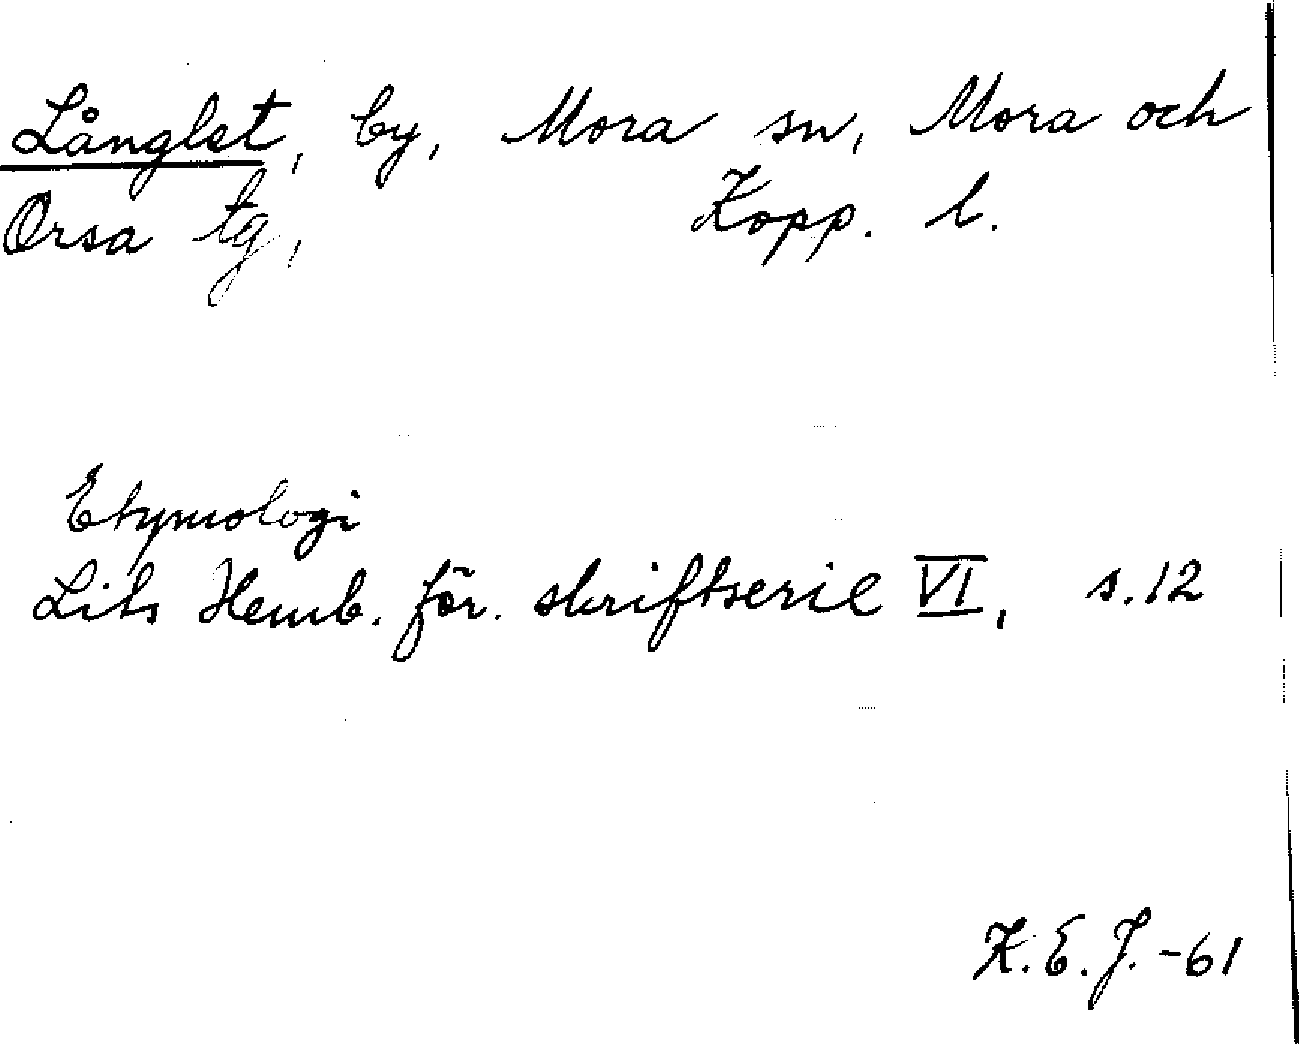 Långlet, by, Mora sn, Mora och
Orsa tg, Kopp. l.
Etymologi
Lits Hemb. för. skriftserie VI, s.12
K.E.J.-61